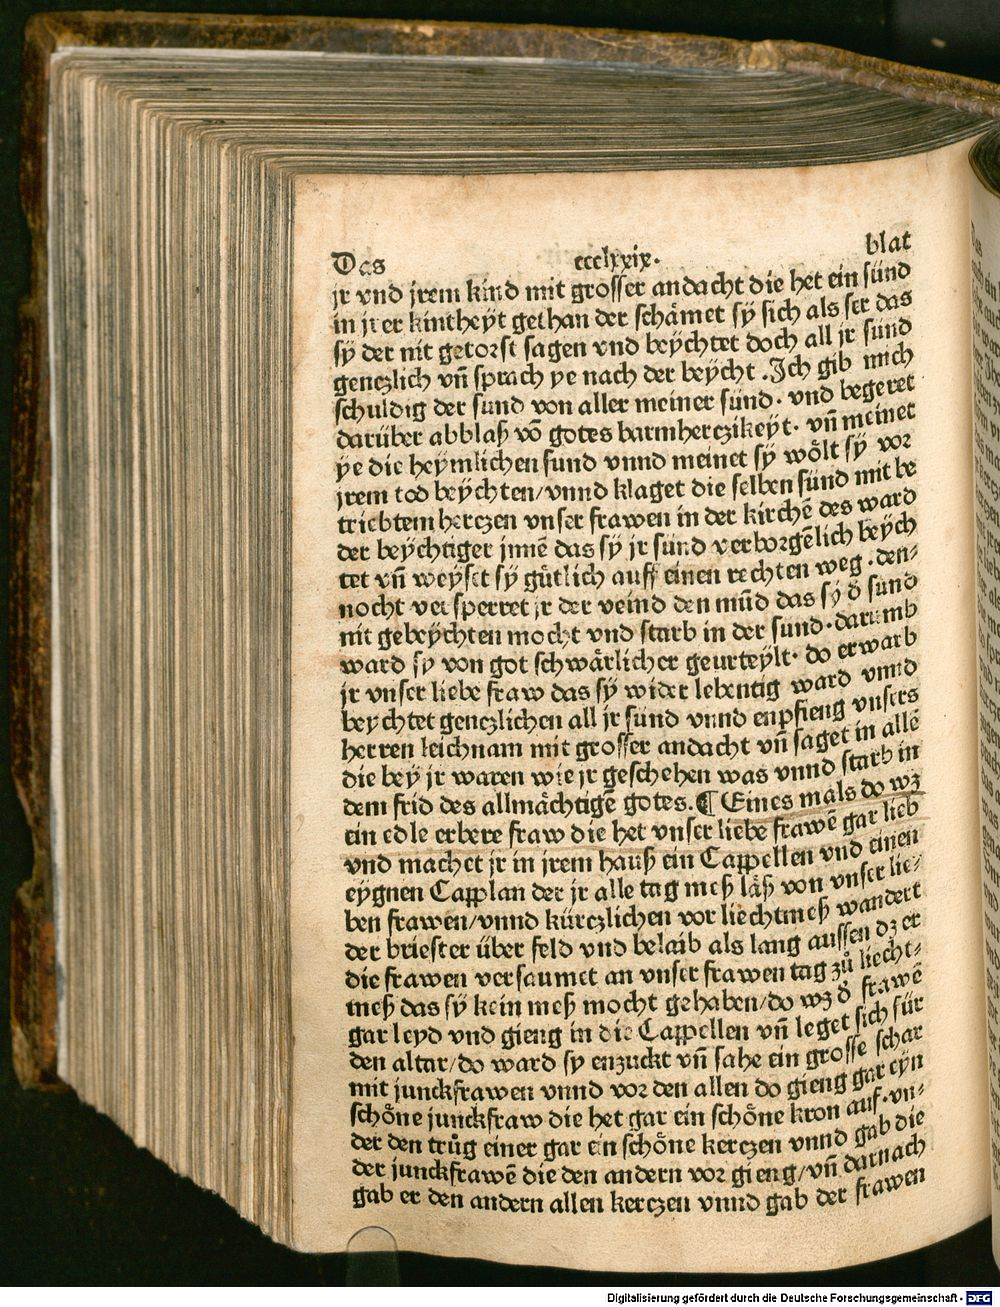 Das ccclxxix. blat
jr vnd jrem kind mit grosser andacht die het ein sünd
in jrer kintheyt gethan der schämet sÿ sich als ser das
sÿ der nit getorst sagen vnd beÿchtet doch all jr sünd
genczlich vñ sprach ye nach der beÿcht .Ich gib mich
schuldig der sund von aller meiner sünd. vnd begeret
darüber abblaß võ gotes barmherczikeÿt. vñ meinet
ÿe die heÿmlichen sund vnnd meinet sÿ wôlt sÿ vor
jrem tod beÿchten/vnnd klaget die selben sünd mit be
triebtem herczen vnser frawen in der kirchẽ des ward
der beÿchtiger jnnẽ das sÿ jr sünd verborgẽlich beÿch
tet vñ weÿset sÿ gütlich auff einen rechten weg .den⸗
nocht versperret jr der veind den mũd das sÿ d̕ sund
nit gebeÿchten mocht vnd starb in der sund.darumb
ward sy von got schwärlicher geurteÿlt. do erwarb
jr vnser liebe fraw das sÿ wider lebentig ward vnnd
beychtet genczlichen all jr sünd vnnd enpfieng vnsers
herren leichnam mit grosser andacht vñ saget in allẽ
die beÿ jr waren wie jr geschehen was vnnd starb in
dem frid des allmächtigẽ gotes.¶ Eines mals do wz
ein edle erbere fraw die het vnser liebe frawẽ gar lieb
vnd machet jr in jrem hauß ein Cappellen vnd einen
eÿgnen Capplan der jr alle tag meß läß von vnser lie⸗
ben frawen/vnnd kürczlichen vor liechtmeß wandert
der briester über feld vnd belaib als lang aussen dz er
die frawen versaumet an vnser frawen tag zů liecht⸗
meß das sÿ kein meß mocht gehaben/do wz d̕ frawẽ
gar leyd vnd gieng in die Cappellen vñ leget sich für
den altar/do ward sy enzuckt vñ sahe ein grosse schar
mit junckfrawen vnnd vor den allen do gieng gar eÿn
schöne junckfraw die het gar ein schöne kron auf.vn⸗
der den trůg einer gar ein schöne kerczen vnnd gab die
der junckfrawẽ die den andern vor gieng/vñ darnach
gab er den andern allen kerczen vnnd gab der frawen
Digitalisierung gefördert durch die Deutsche Forschungsgemeinschaft - DFG